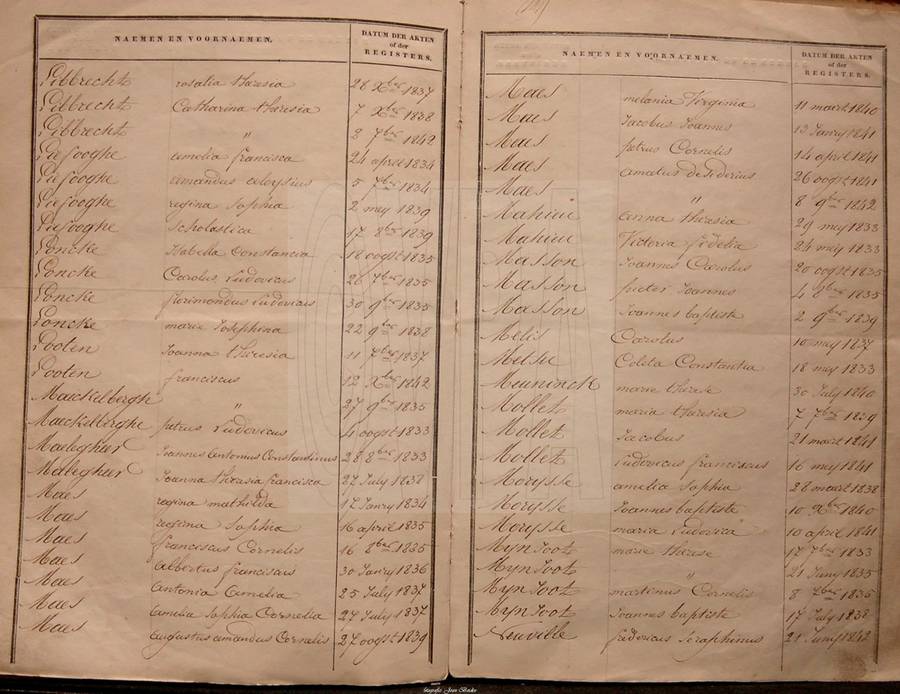 NAEMEN EN VOORNAEMEN. DATUM DER AKTEN of der REGISTERS.
Libbrecht rosalia theresia 28 Xber 1837
Libbrecht Catharina theresia 7 Xber 1838
Libbrecht " 2 7ber 1842
Liefooghe amelia francisca 24 april 1834
Liefooghe amandus aloysius 5 7ber 1834
Liefooghe regina Sophia 2 mey 1839
Liefooghe Scholastica 17 8ber 1839
Loncke Isabella Constancia 18 oogst 1835
Loncke Carolus Ludovicus 26 7ber 1835
Loncke florimondus Ludovicus 30 9ber 1835
Loncke marie Josephina 22 9ber 1838
Looten Joanna theresia 11 7ber 1837
Looten franciscus 12 Xber 1842
Maeckelbergh " 27 9ber 1835
Maeckelberghe petrus Ludovicus 4 oogst 1833
Maelegheer Joannes antonius Constantinus 28 8ber 1833
Malegheer Joanna theresia francisca 27 July 1838
Maes regina mathilda 12 Janry 1834
Maes regina Sophia 16 april 1835
Maes franciscus Cornelis 16 8ber 1835
Maes Albertus franciscus 30 Janry 1836
Maes antonia amelia 25 July 1837
Maes amelia Sophia Cornelia 27 July 1837
Maes augustus amandus Cornelis 27 oogst 1839
NAEMEN EN VOORNAEMEN. DATUM DER AKTEN of der REGISTERS.
Maes melania Virginia 11 maart 1840
Maes Jacobus Joannes 13 Janry 1841
Maes petrus Cornelis 14 april 1841
Maes amatus desiderius 26 oogst 1841
Maes " 8 9ber 1842
Mahieu anna theresia 29 mey 1833
Mahieu Victoria fidelia 24 mey 1833
Masson Joannes Carolus 20 oogst 1835
Masson pieter Joannes 4 8ber 1835
Masson Joannes baptiste 2 9ber 1839
Melis Carolus 10 mey 1837
Melsie Coleta Constantia 18 mey 1833
Meuninck marie therese 30 July 1840
Mollet maria theresia 7 7ber 1839
Mollet Jacobus 21 maart 1841
Mollet Ludovicus franciscus 16 mey 1841
Morysse amelia Sophia 28 maart 1838
Morysse Joannes baptiste 10 Xber 1840
Morysse maria Ludovica 10 april 1841
Mynsoot marie therese 17 7ber 1833
Mynsoot " 21 Juny 1835
Mynsoot martinus Cornelis 8 1835
Mynsoot Joannes baptiste 17 July 1838
Neuville fredericus Seraphinus 21 Juny 1842